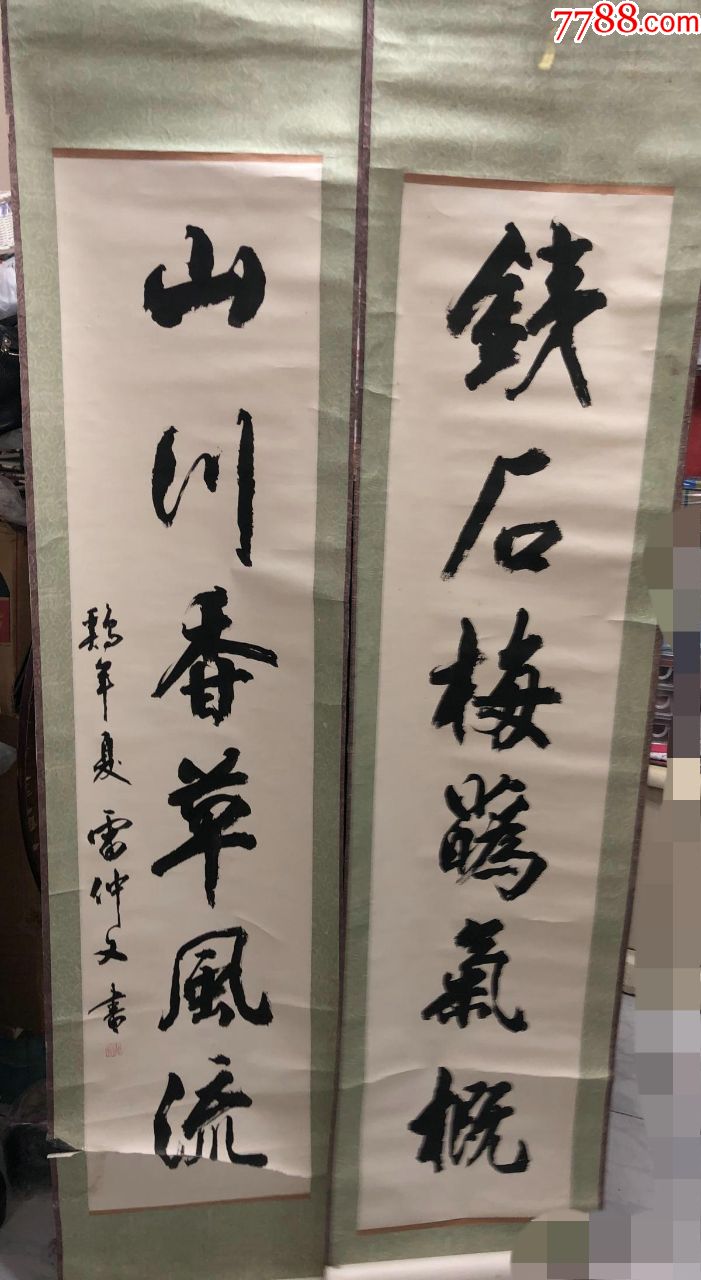 7788.com
銕石梅蘤氣概
山川香草風流
鷄年夏 雷仲文書